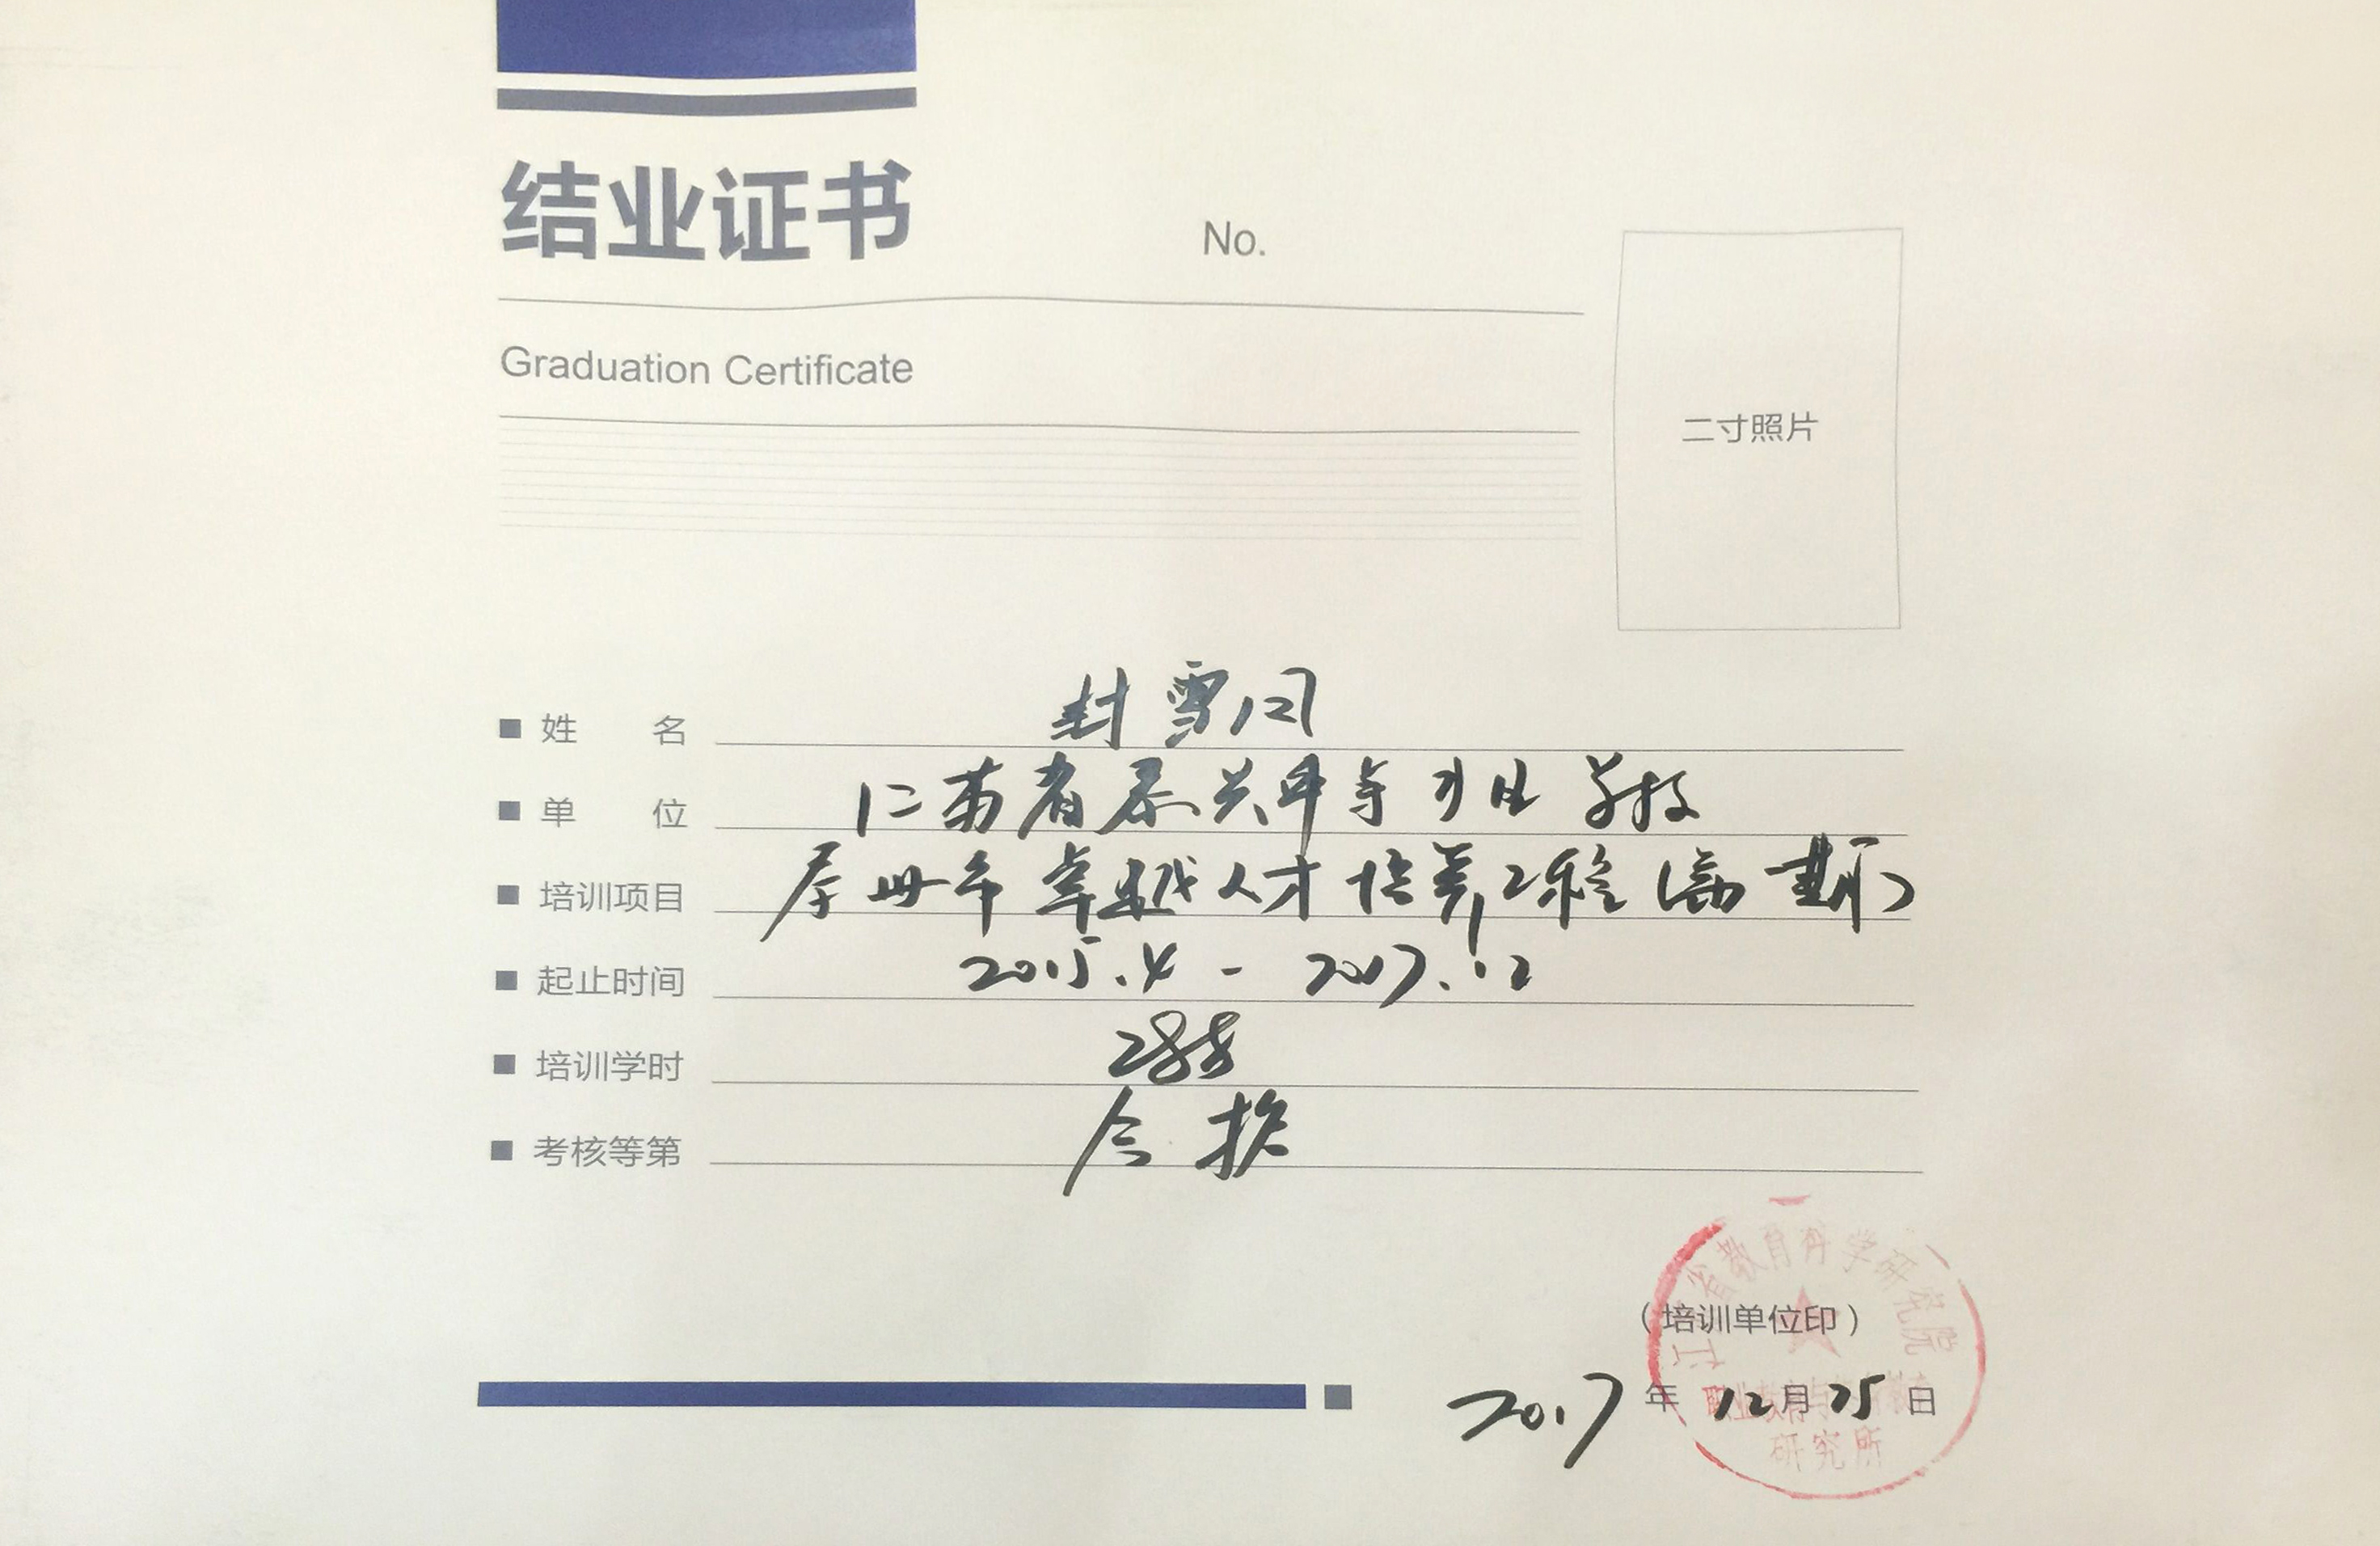 结业证书
No.
Graduation Certificate
二寸照片
姓 名 封雪
单 位 江苏省泰兴中等专业学校
培训项目 卓越人才培养工程
起止时间 2015.4 - 2017.12
培训学时 288
考核等第 合格
江 省教育科学研究院
（培训单位印）
2017 年 12 月 25 日
职业教育与 教育
研究所